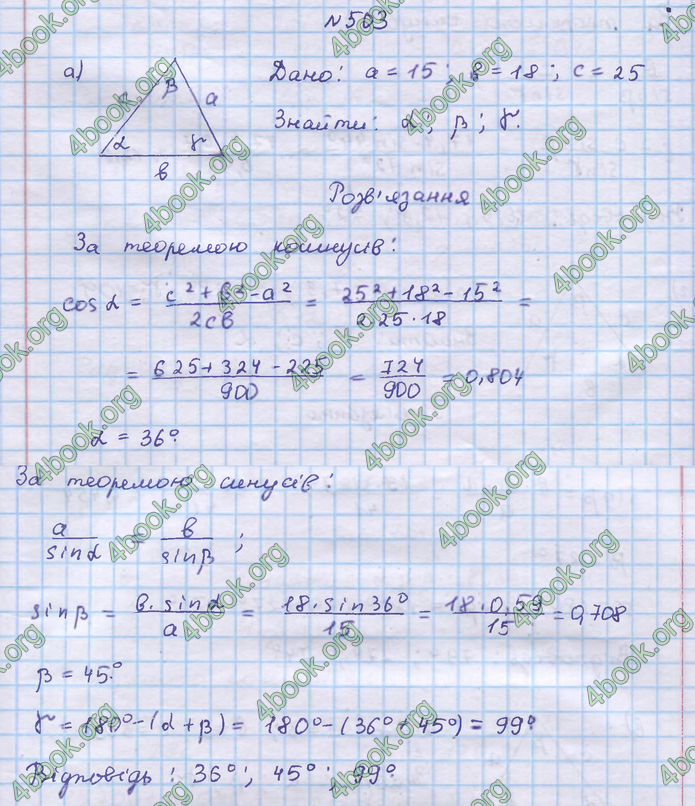 №503
а)
Дано: a = 15; в = 18; c = 25
Знайти: α; β; γ.
β a
α γ
в
Розв'язання
За теоремою косинусів:
cos α = (c² + в² - a²)/(2cв) = (25² + 18² - 15²)/(2·25·18) =
= (625 + 324 - 225)/900 = 724/900 = 0,804
α = 36°.
За теоремою синусів:
a/sin α = в/sin β ;
sin β = (в·sin α)/a = (18·sin 36°)/15 = (18·0,59)/15 = 0,708
β = 45°.
γ = 180° - (α + β) = 180° - (36° + 45°) = 99°.
Відповідь: 36°; 45°; 99°.
4book.org